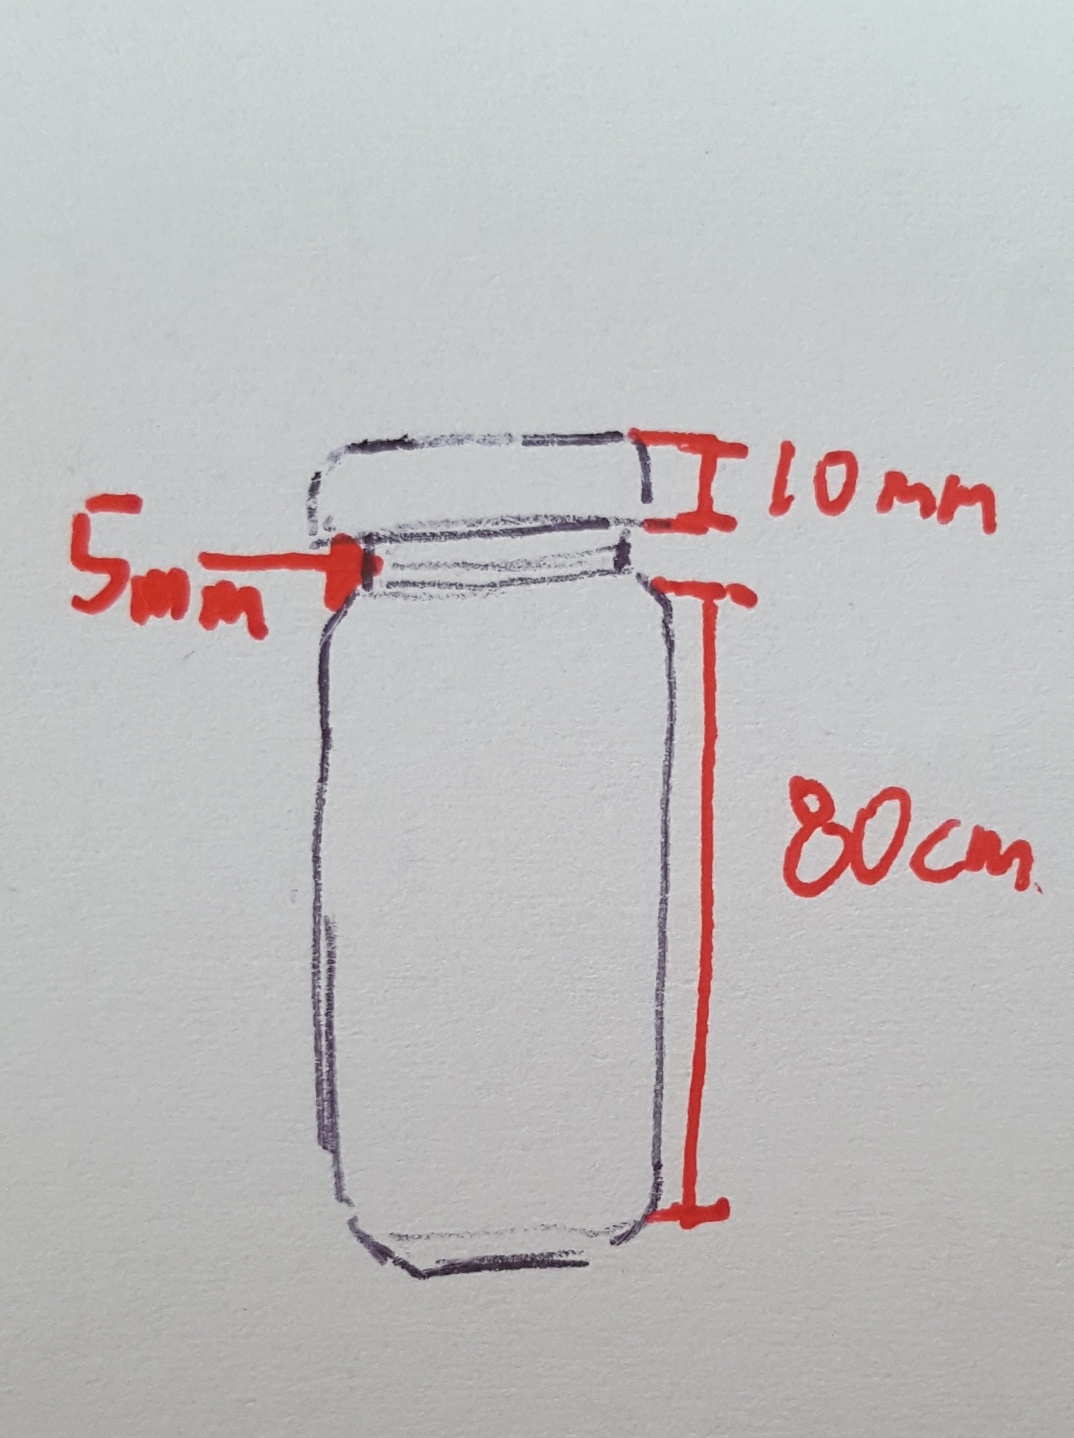 10mm
5mm
80cm